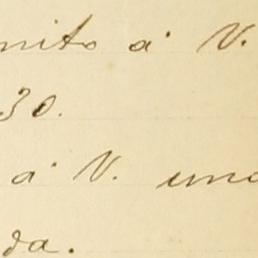 mito á V.
30.
á V. una
da.